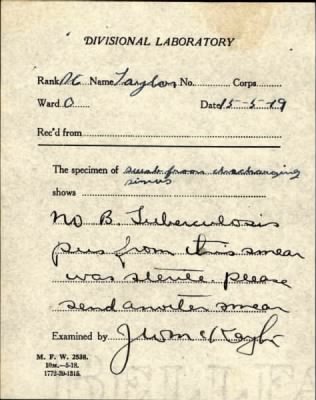 DIVISIONAL LABORATORY
Rank Name Taylor No. Corps
Ward O Date 15-5-19
Rec'd from
The specimen of swab from discharging
sinus
shows
No B. Tuberculosis
pus from this smear
was sterile please
send another smear
Examined by
M. F. W. 2538.
10M.—5-18.
1772-39-1315.